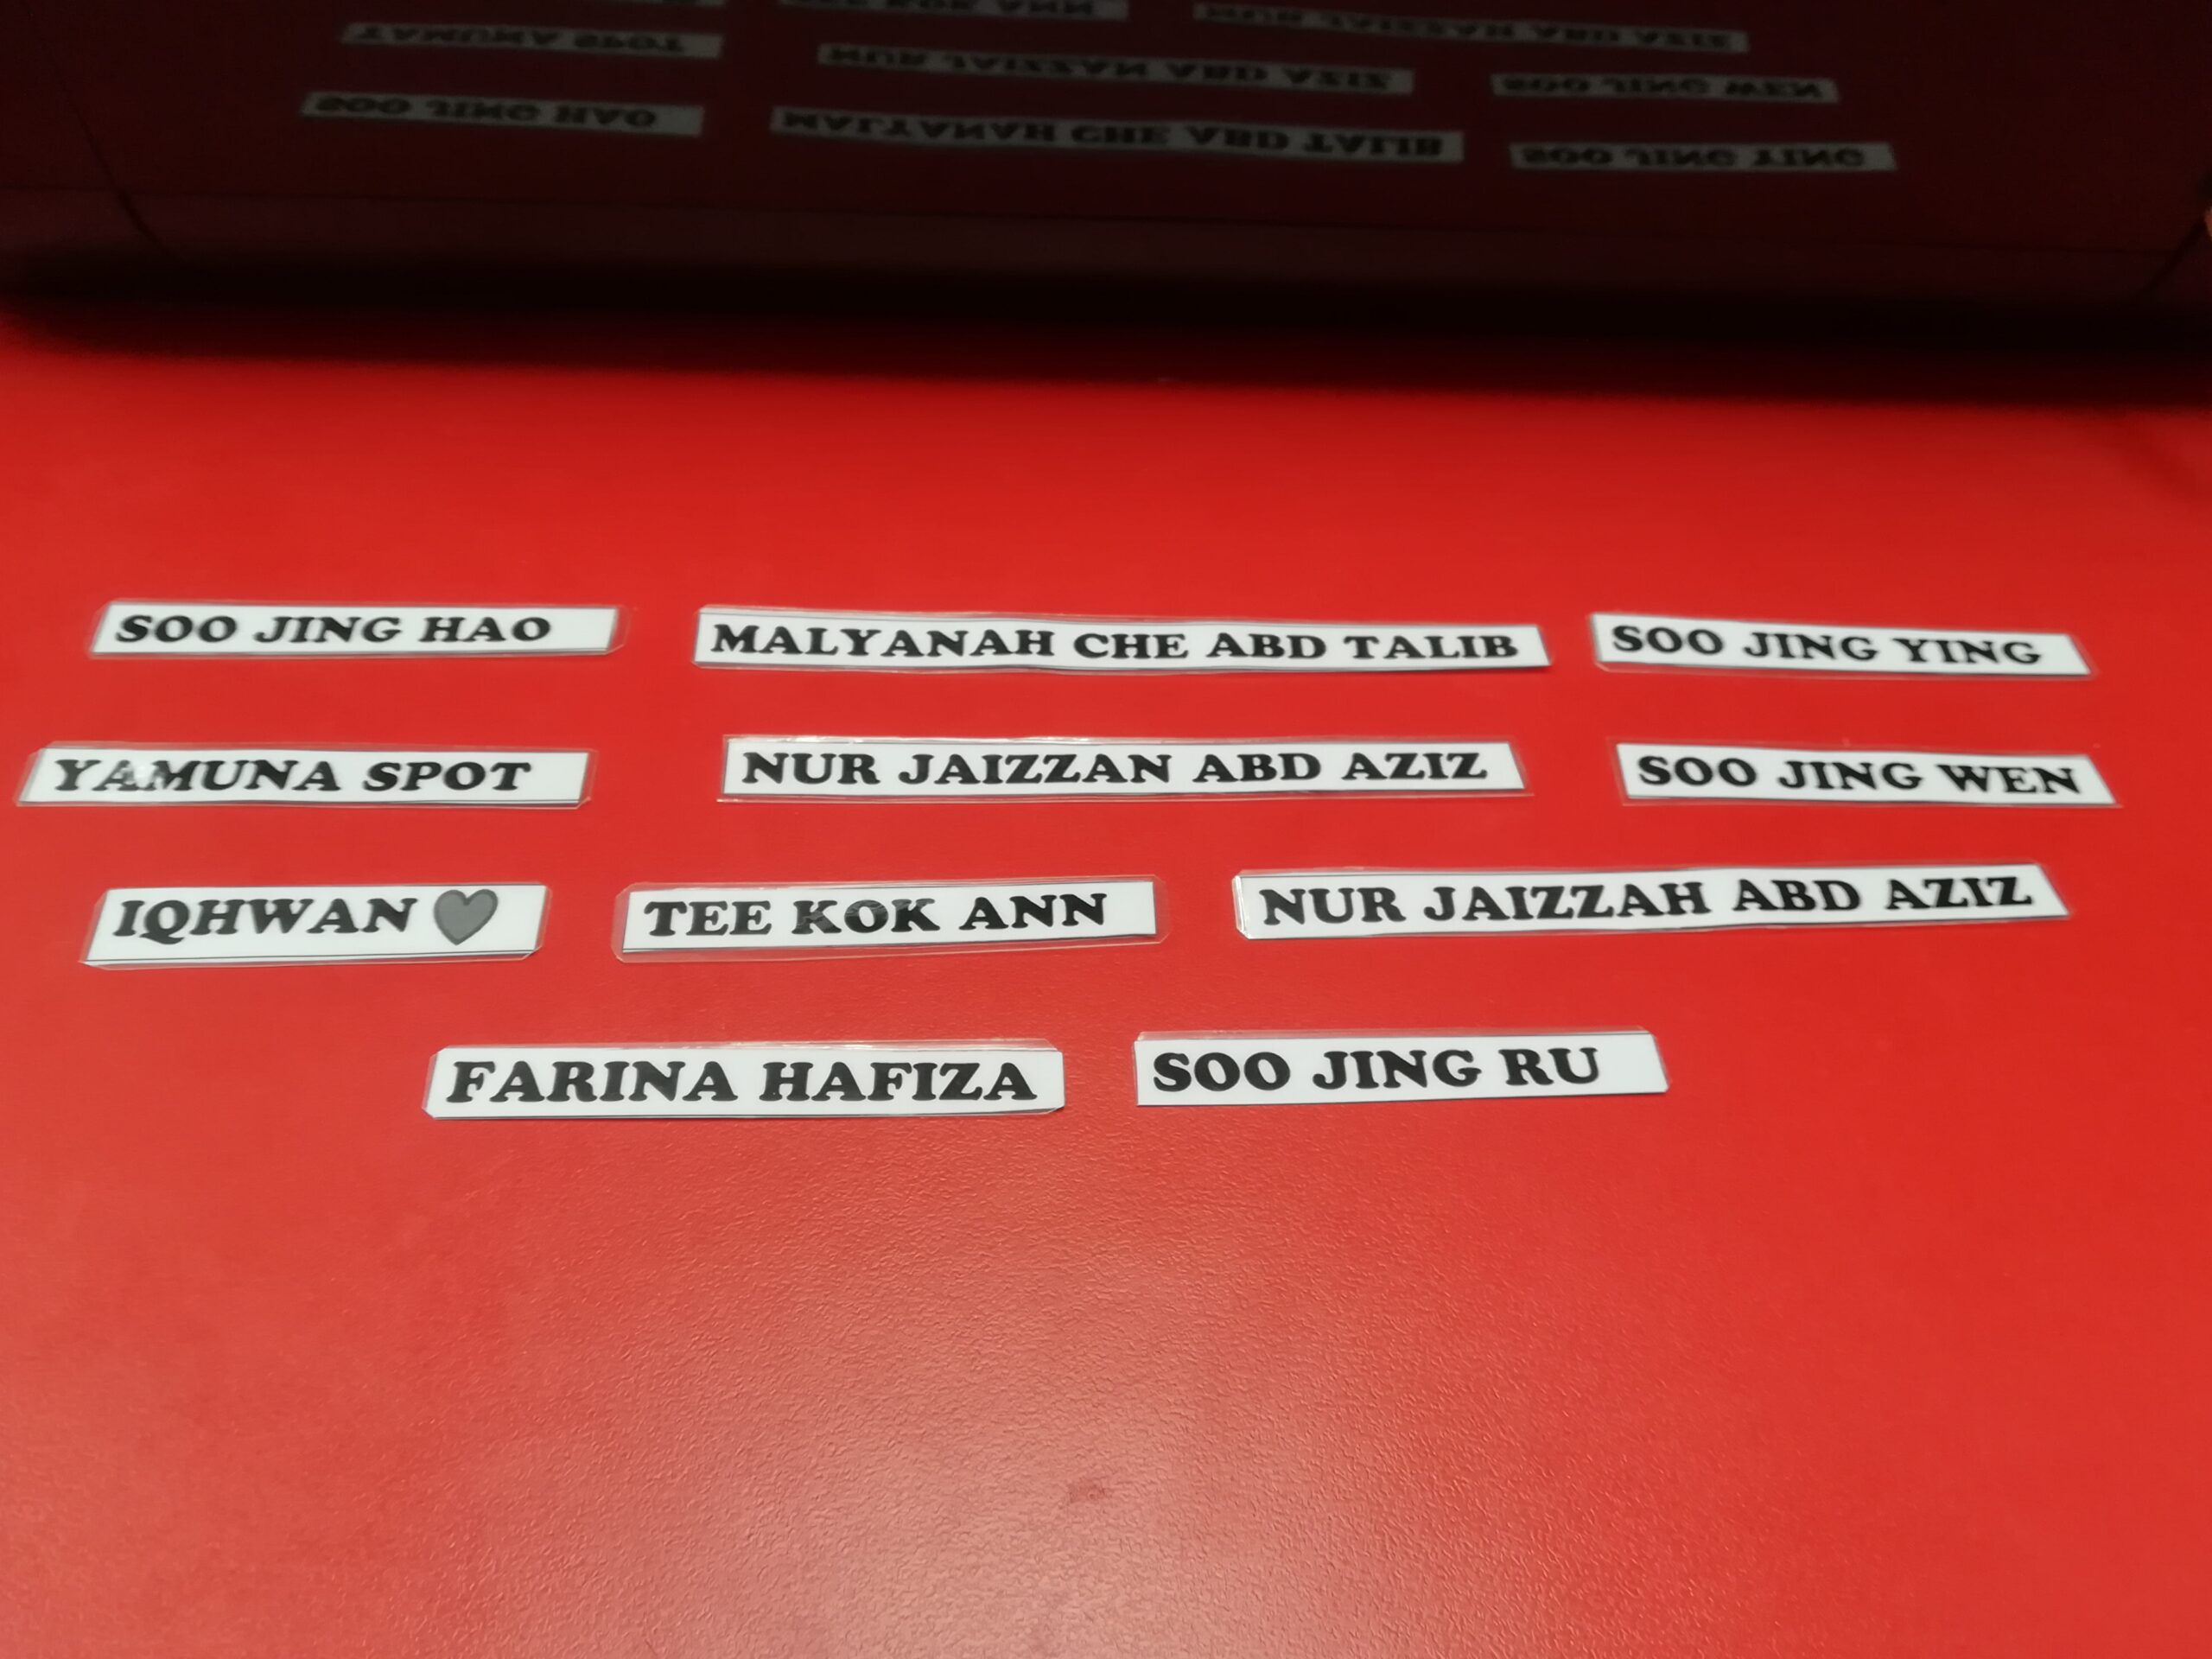 SOO JING HAO
MALYANAH CHE ABD TALIB
SOO JING YING
YAMUNA SPOT
NUR JAIZZAN ABD AZIZ
SOO JING WEN
IQHWAN 🖤
TEE KOK ANN
NUR JAIZZAH ABD AZIZ
FARINA HAFIZA
SOO JING RU